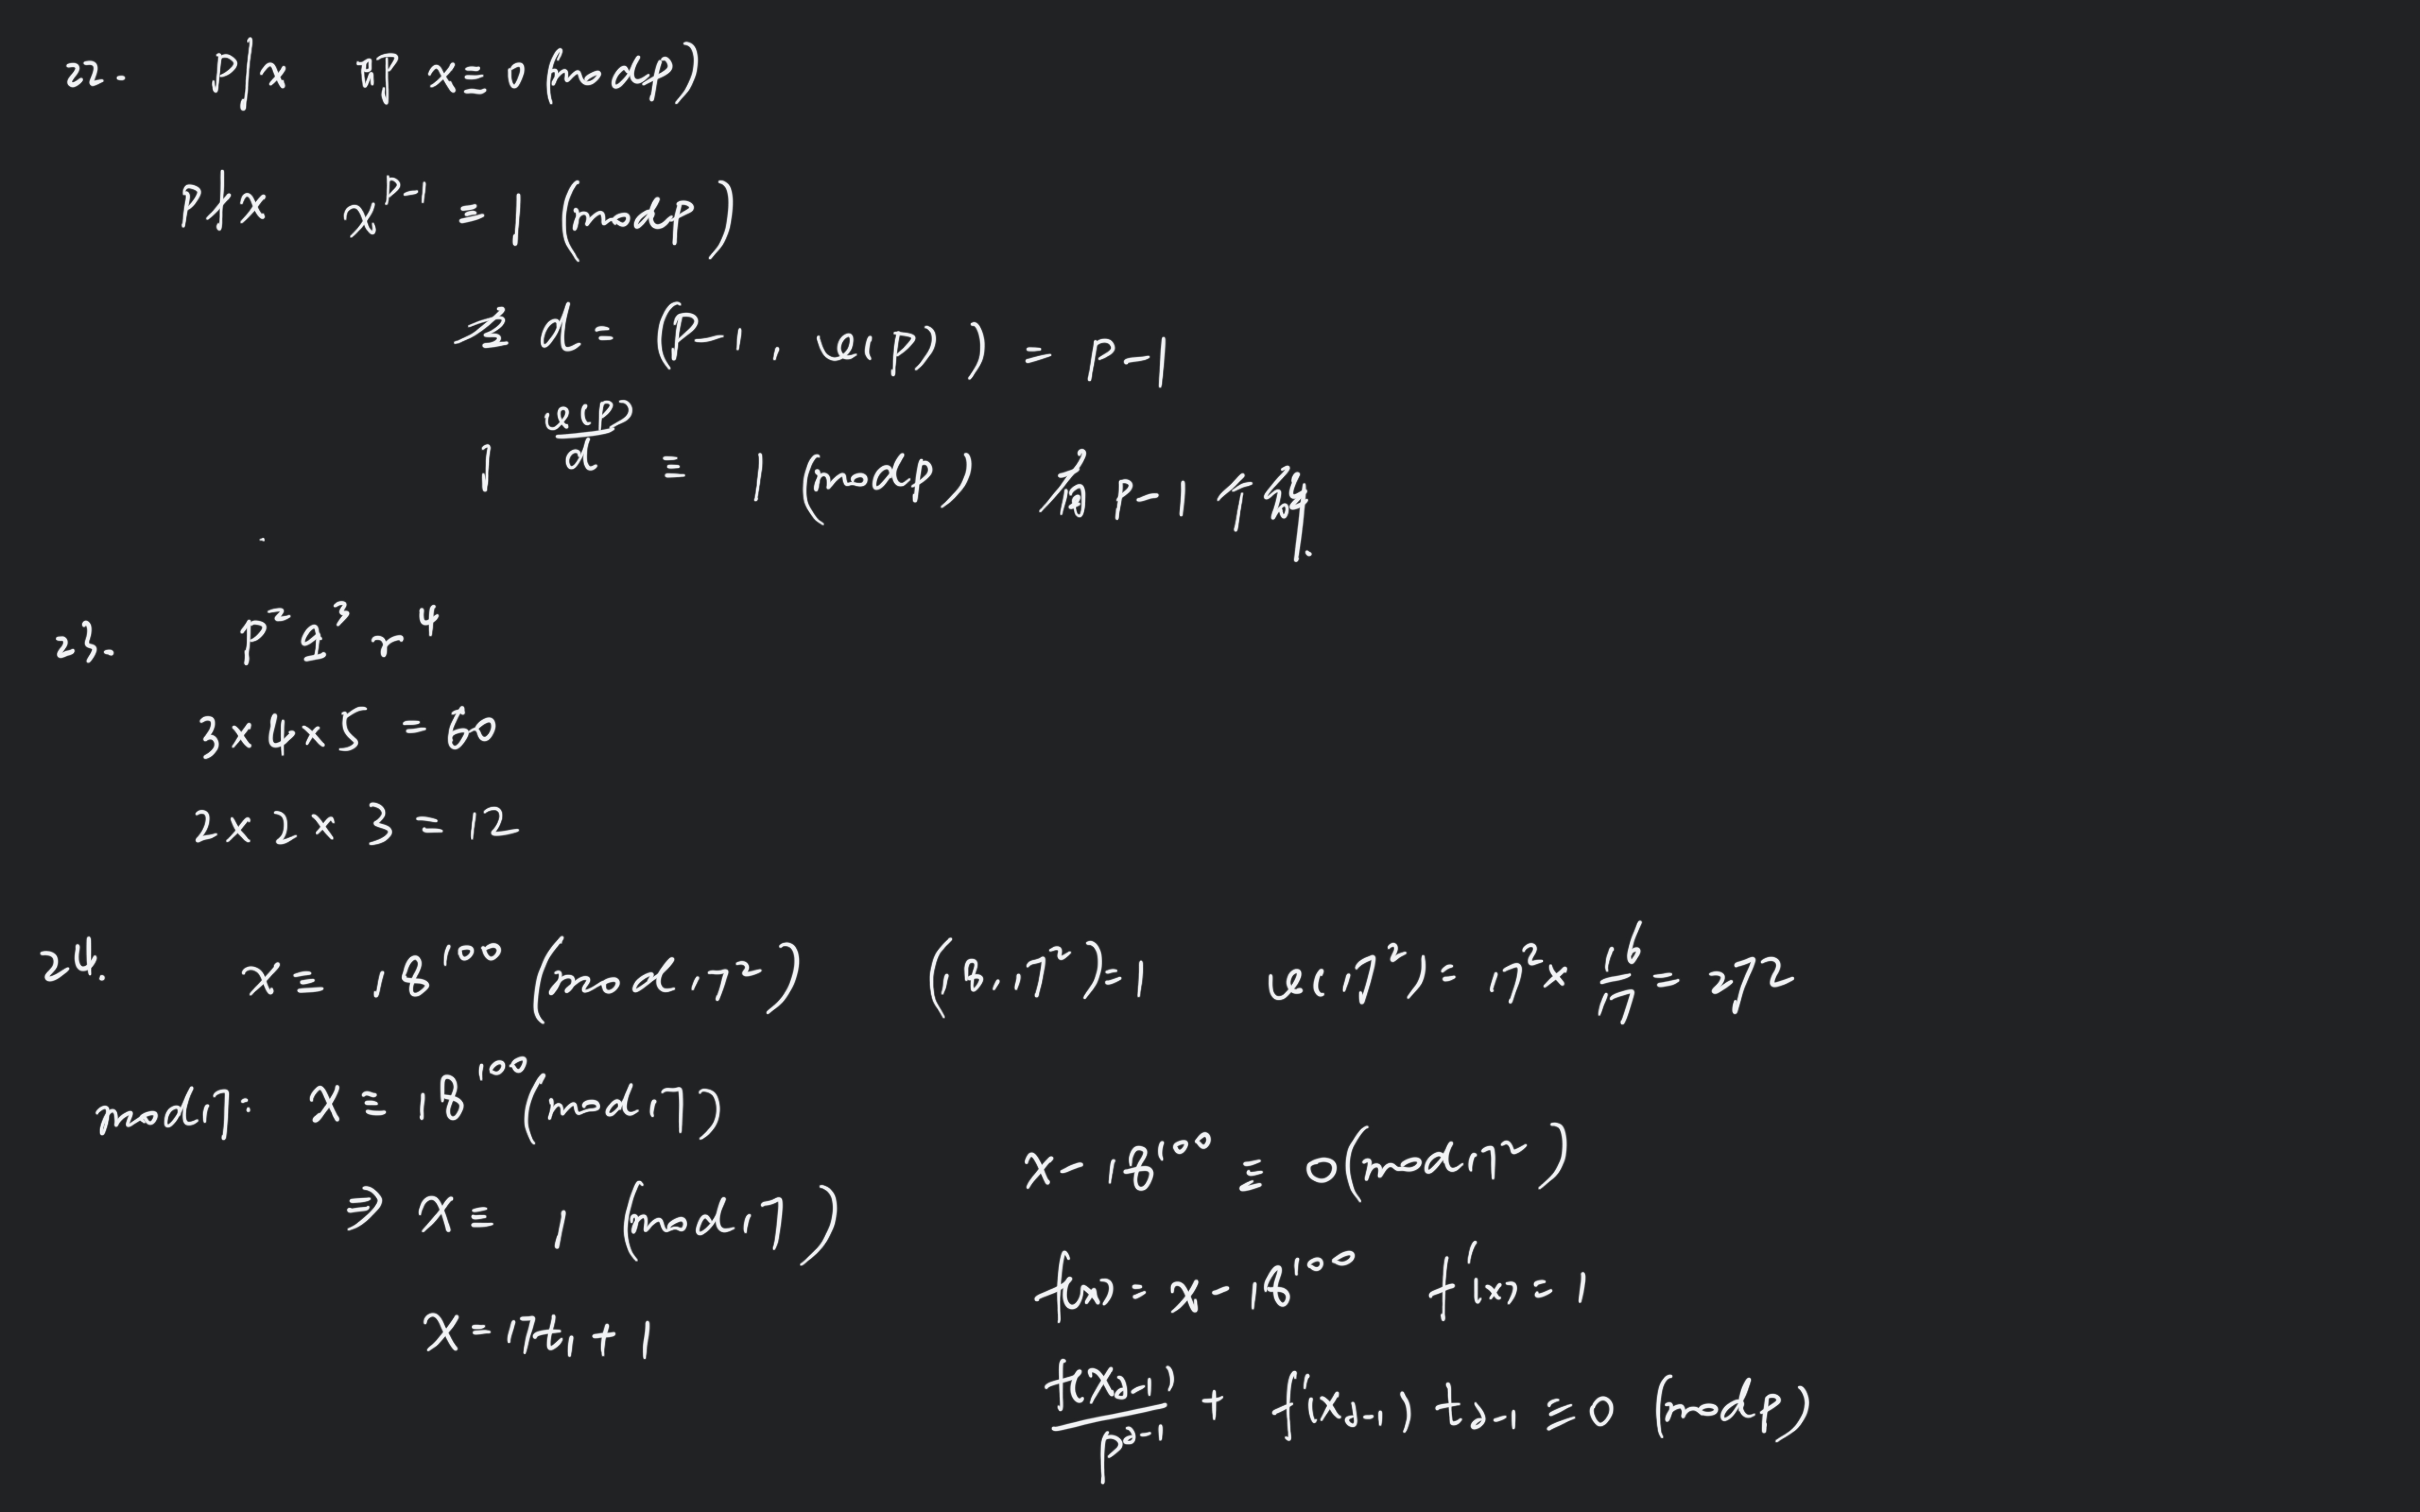 22. p|x 即 x≡0 (mod p)
p∤x x^{p-1} ≡ 1 (mod p)
d = (p-1, φ(p)) = p-1
1^{φ(p)/d} ≡ 1 (mod p) 有 p-1 个解.
23. p²q³r⁴
3×4×5 = 60
2×2×3 = 12
24. x ≡ 18^{100} (mod 17²) (18, 17²)=1 φ(17²) = 17² × 16/17 = 272
mod 17: x ≡ 18^{100} (mod 17)
⇒ x ≡ 1 (mod 17)
x = 17t₁ + 1
x - 18^{100} ≡ 0 (mod 17²)
f(x) = x - 18^{100} f'(x) = 1
f(x_{∂-1})/p^{∂-1} + f'(x_{∂-1}) t_{∂-1} ≡ 0 (mod p)